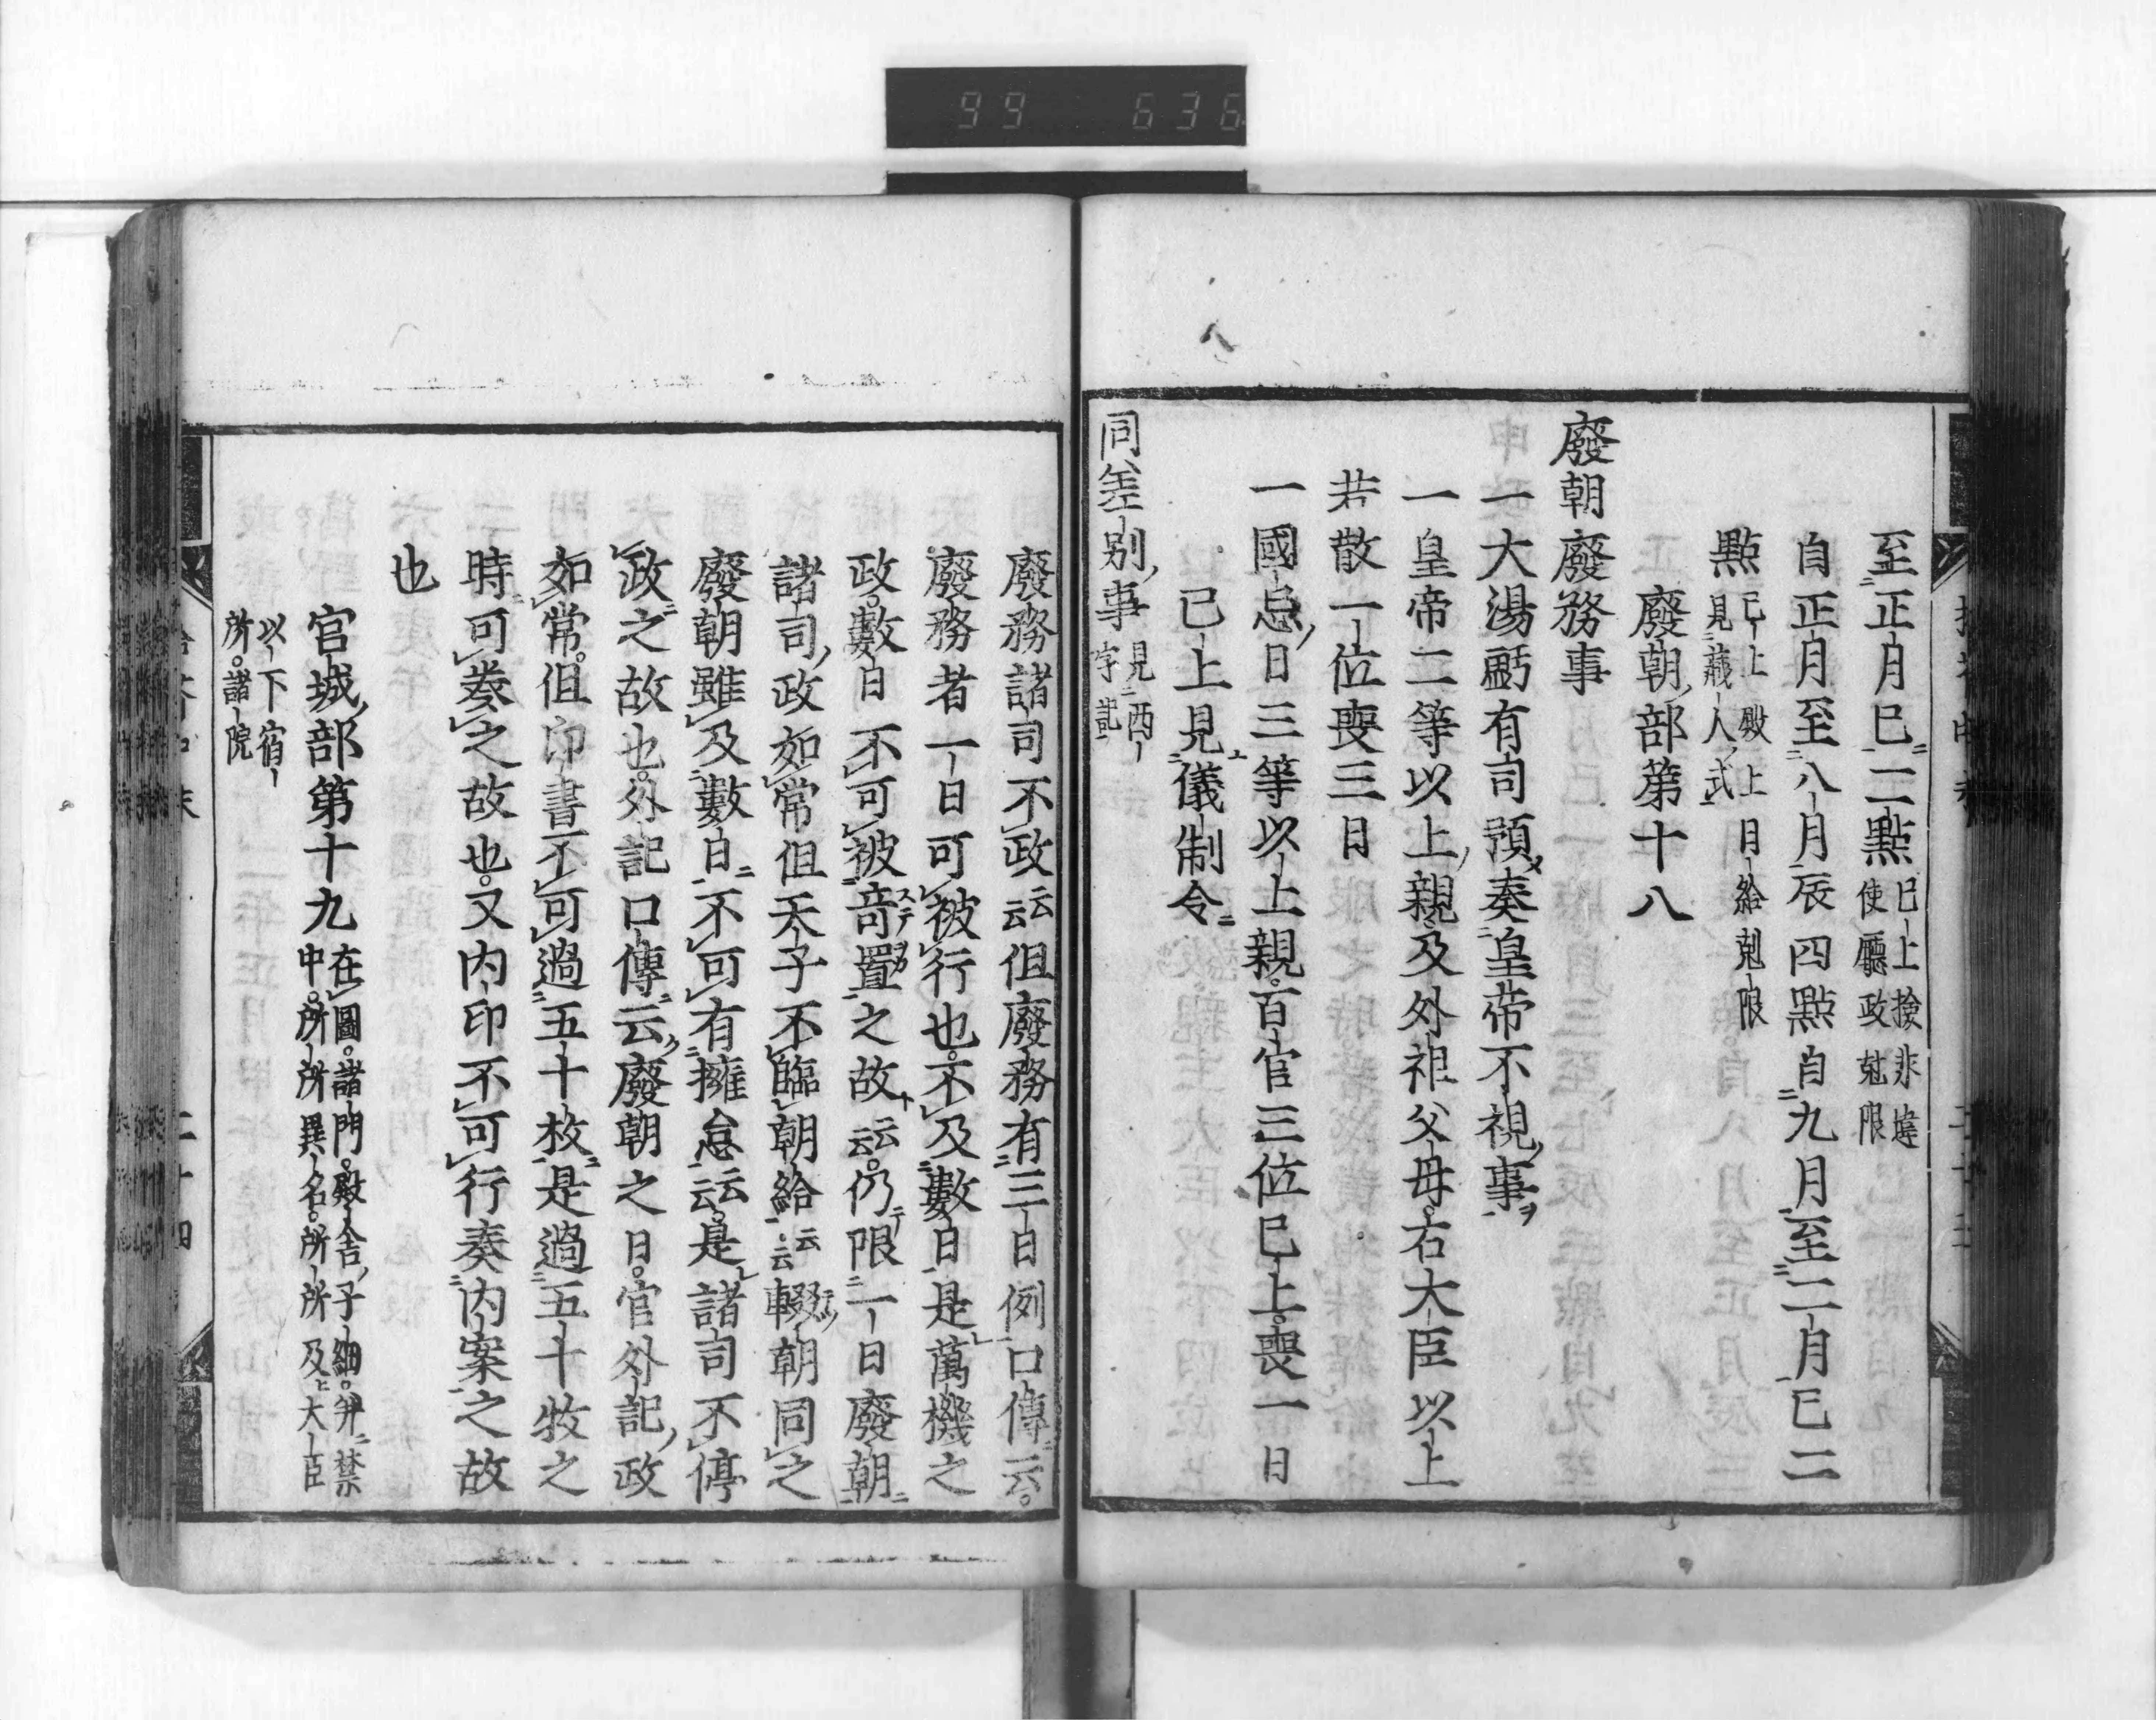 99 636
至正月巳二點巳上撿非違
使廳政尅限
自正月至八月辰四點自九月至二月巳二
點巳上殿上日給尅限
見藏人式
廢朝部第十八
廢朝廢務事
一大湯虧有司預奏皇帝不視事
一皇帝二等以上親及外祖父母右大臣以上
若散一位喪三日
一國忌日三等以上親百官三位巳上喪一日
巳上見儀制令
同差別事見西
字記
廢務諸司不政云云但廢務有三日例口傳云
廢務者一日可被行也不及數日是萬機之
政數日不可被竒置之故云云仍限一日廢朝
諸司政如常但天子不臨朝給云云輟朝同之
廢朝雖及數日不可有擁怠云云是諸司不停
政之故也外記口傳云廢朝之日官外記政
如常但印書不可過五十枚是過五十牧之
時可奏之故也又内印不可行奏内案之故
也
官城部第十九在圖諸門殿舍子細并禁
中所所異名所所及大臣
以下宿
所諸院